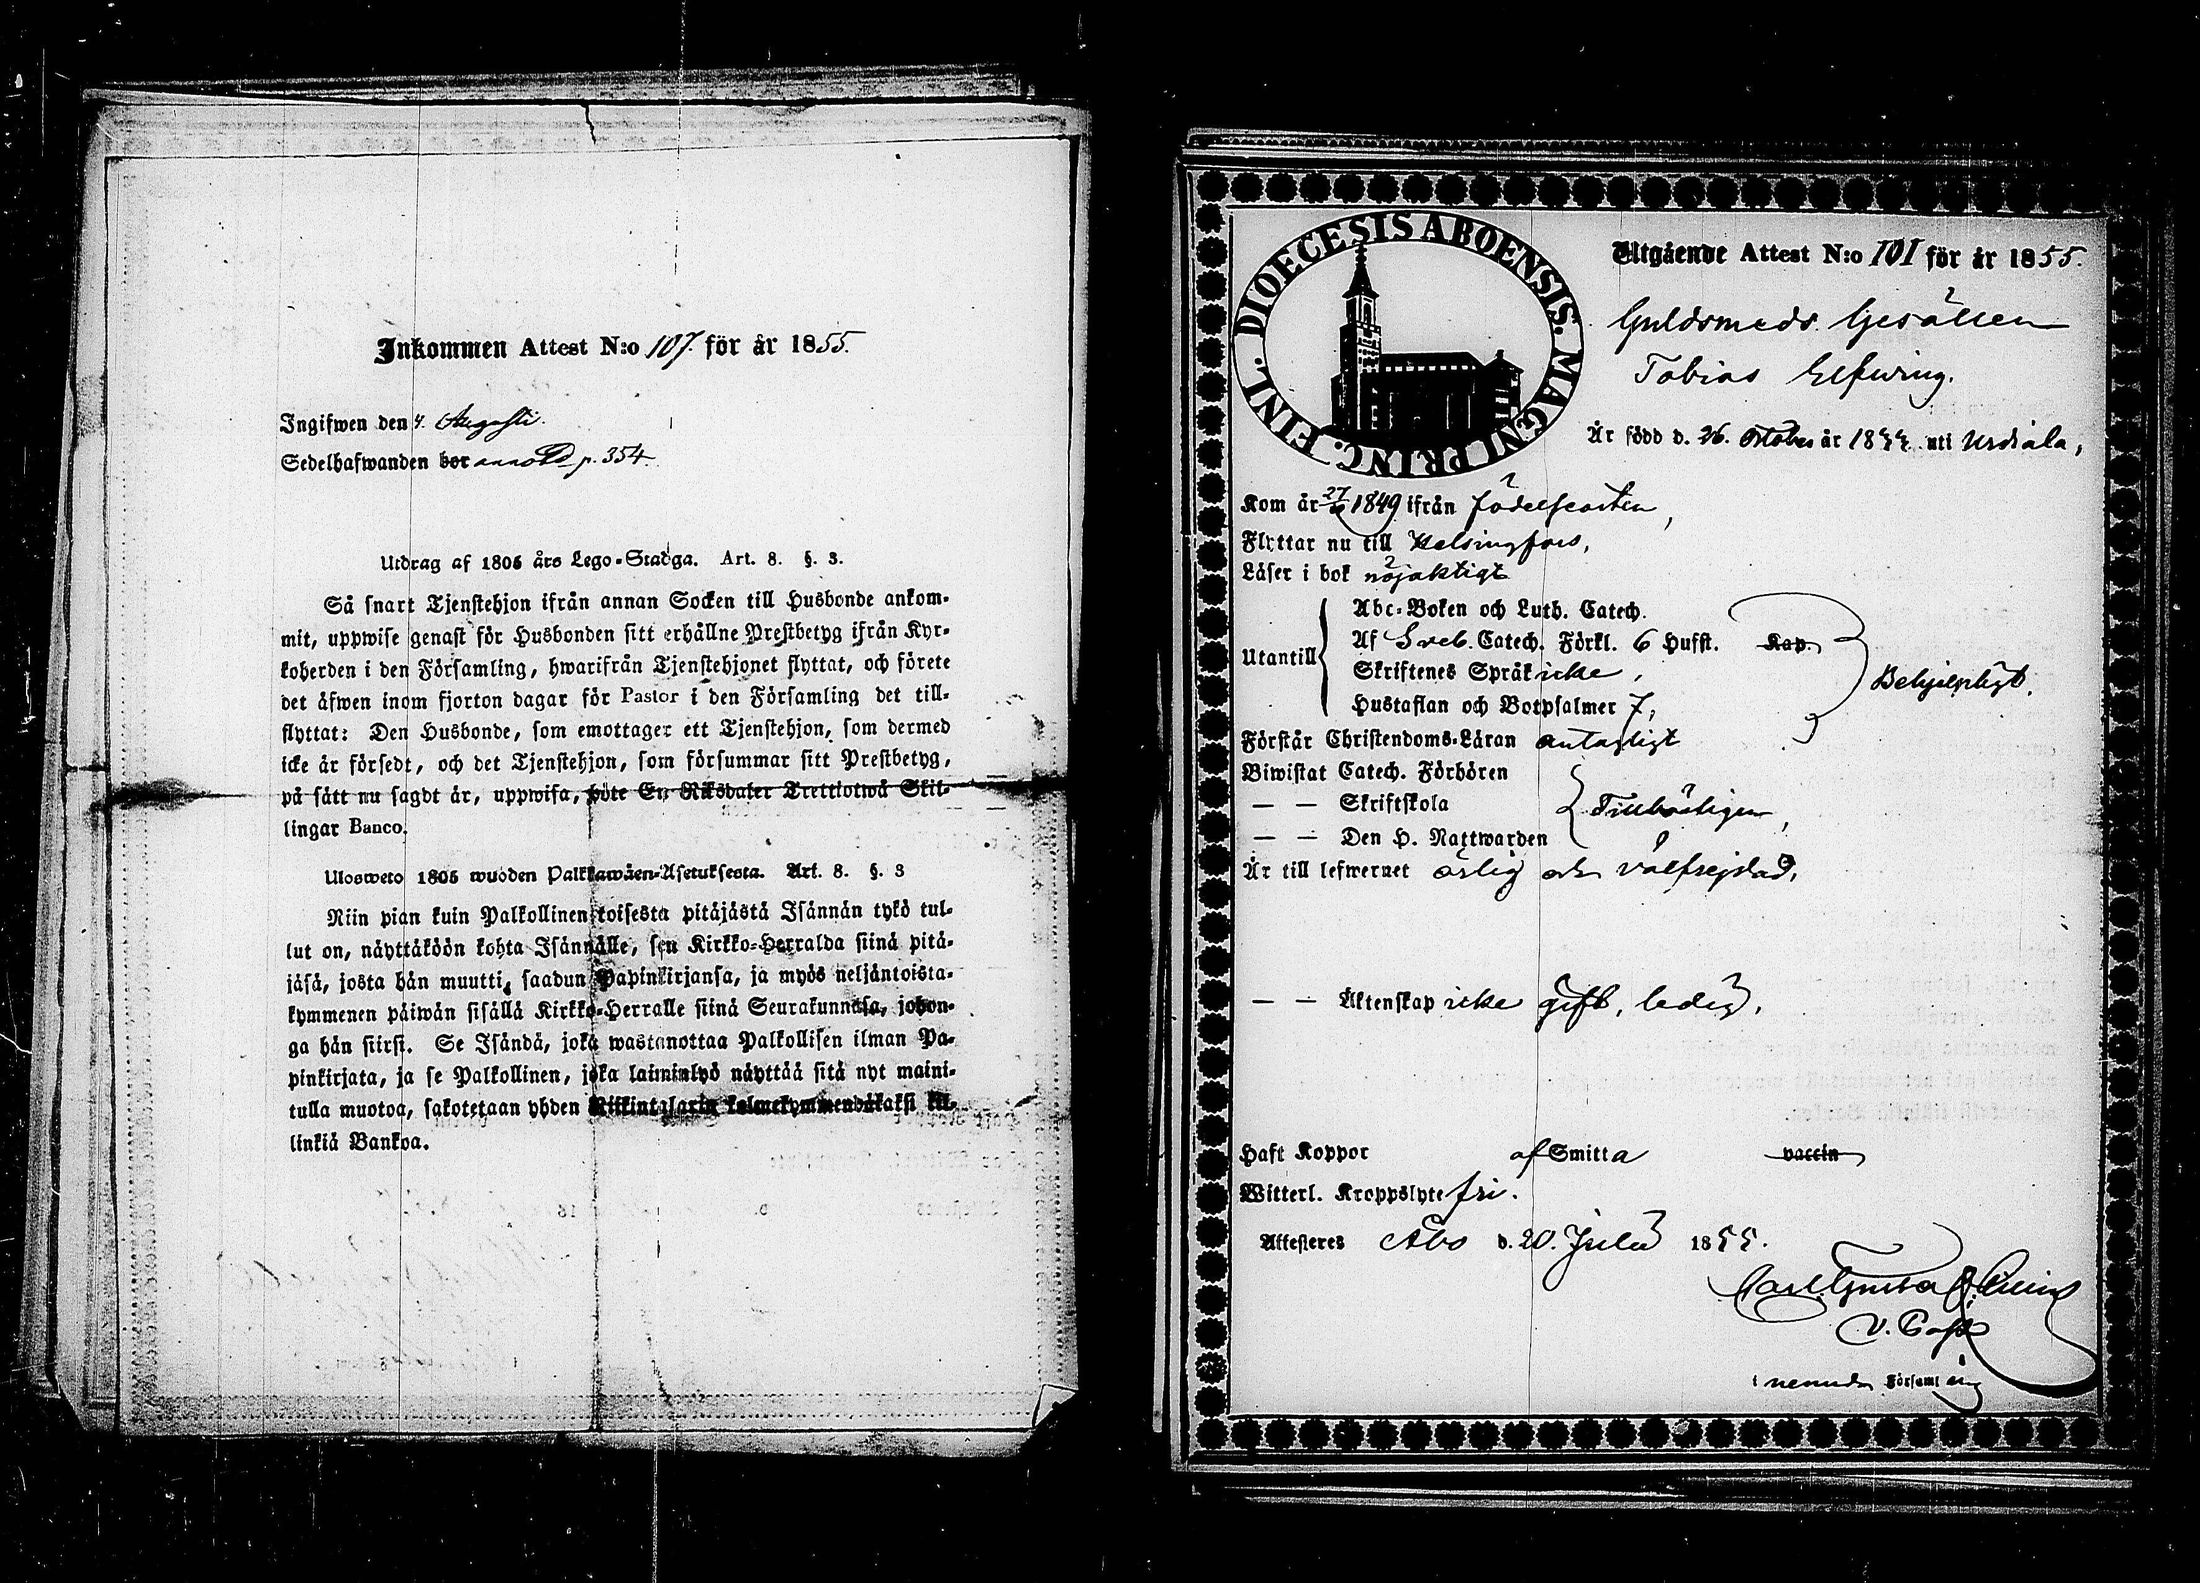 Inkommen Attest N:o 107. för år 1855.
Ingifwen den 4. Augusti.
Sedelhafwanden bor annoterad p. 354.
Utdrag af 1805 års Lego-Stadga. Art. 8. §. 3.
Så snart Tjenstehjon ifrån annan Socken till Husbonde ankom-
mit, uppwise genast för Husbonden sitt erhållne Prestbetyg ifrån Kyr-
koherden i den Församling, hwarifrån Tjenstehjonet flyttat, och förete
det äfwen inom fjorton dagar för Pastor i den Församling det till-
flyttat: Den Husbonde, som emottager ett Tjenstehjon, som dermed
icke är försedt, och det Tjenstehjon, som försummar sitt Prestbetyg,
på sätt nu sagdt är, uppwisa, böte En Riksdaler Trettiotwå Skil-
lingar Banco.
Ulosweto 1805 wuoden Palkkawäen-Asetuksesta. Art. 8. §. 3
Niin pian kuin Palkollinen toisesta pitäjästä Isännän tykö tul-
lut on, näyttäköön kohta Isännälle, sen Kirkko-Herralda siinä pitä-
jäsä, josta hän muutti, saadun Papinkirjansa, ja myös neljäntoista-
kymmenen päiwän sisällä Kirkko-Herralle siinä Seurakunnasa, johon-
ga hän siirsi. Se Isändä, joka wastanottaa Palkollisen ilman Pa-
pinkirjata, ja se Palkollinen, joka laiminlyö näyttää sitä nyt maini-
tulla muotoa, sakotetaan yhden Riikintalarin kolmekymmendäkaksi kil-
linkiä Bankoa.
DIOECESIS ABOENSIS. MAGNI PRINC. FINL.
Utgående Attest N:o 101 för år 1855.
Guldsmeds Gesällen
Tobias Elfving.
Är född d. 26. October år 1833 uti Urdiala,
Kom år 27/6 1849 ifrån födelseorten,
Flyttar nu till Helsingfors,
Läser i bok nöjaktigt
Utantill
Abc-Boken och Luth. Catech.
Af Sveb. Catech. Förkl. 6 Hufst. Kap.
Skriftenes Språk icke,
Hustaflan och Botpsalmer 7,
Behjelpligt.
Förstår Christendoms-Läran antagligt
Biwistat Catech. Förhören
— — Skriftskola
Tillbörligen,
— — Den H. Nattwarden
Är till lefwernet ärlig och välfrejdad,
— — Äktenskap icke gift, ledig,
Haft Koppor af Smitta vaccin
Witterl. Kroppslyte fri.
Attesteres Åbo d. 20. Julii 1855.
Carl Gustaf
V. Past
i nemnda Församling